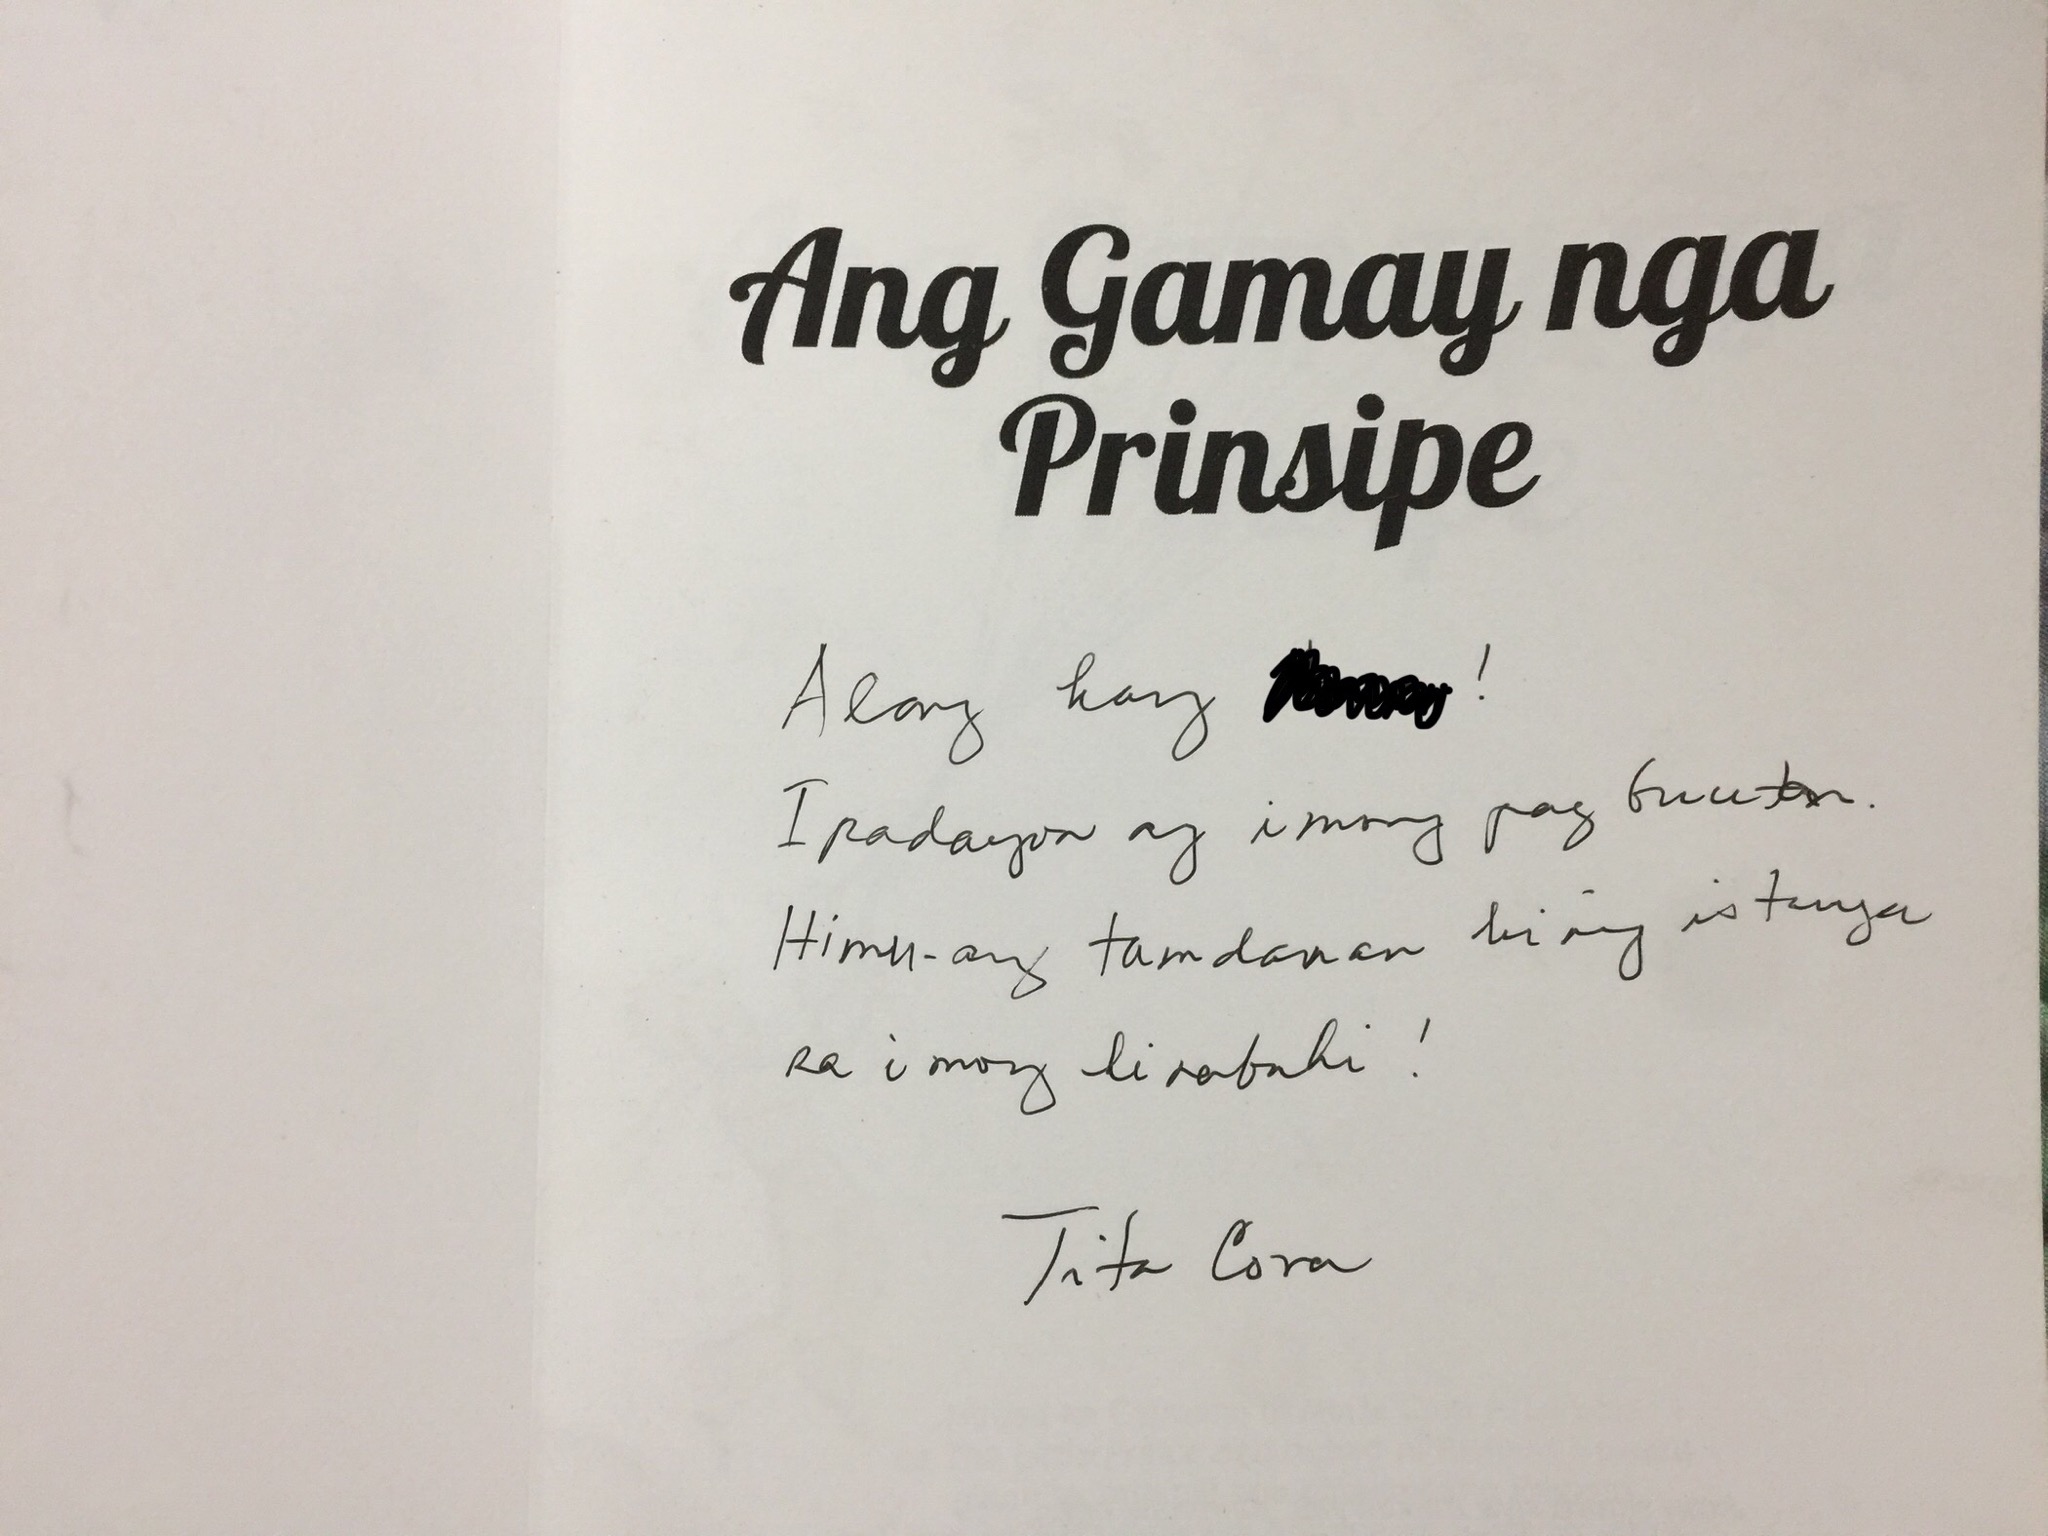 Ang Gamay nga
Prinsipe
Alang kang !
Ipadayon ag imong pag buutan.
Himu-ang tamdanan kining istorya
sa imong kinabuhi!
Tita Cora